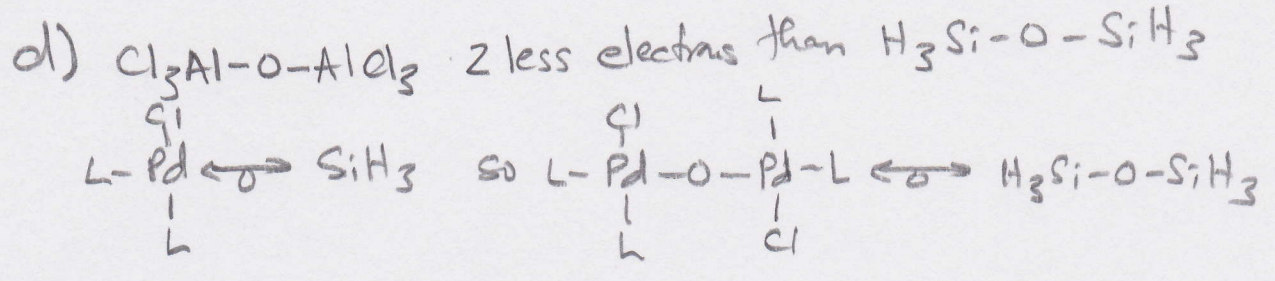 d) Cl3Al-O-AlCl3 2 less electrons than H3Si-O-SiH3
L
Cl Cl
L-Pd ⟷ SiH3 so L-Pd-O-Pd-L ⟷ H3Si-O-SiH3
L L Cl